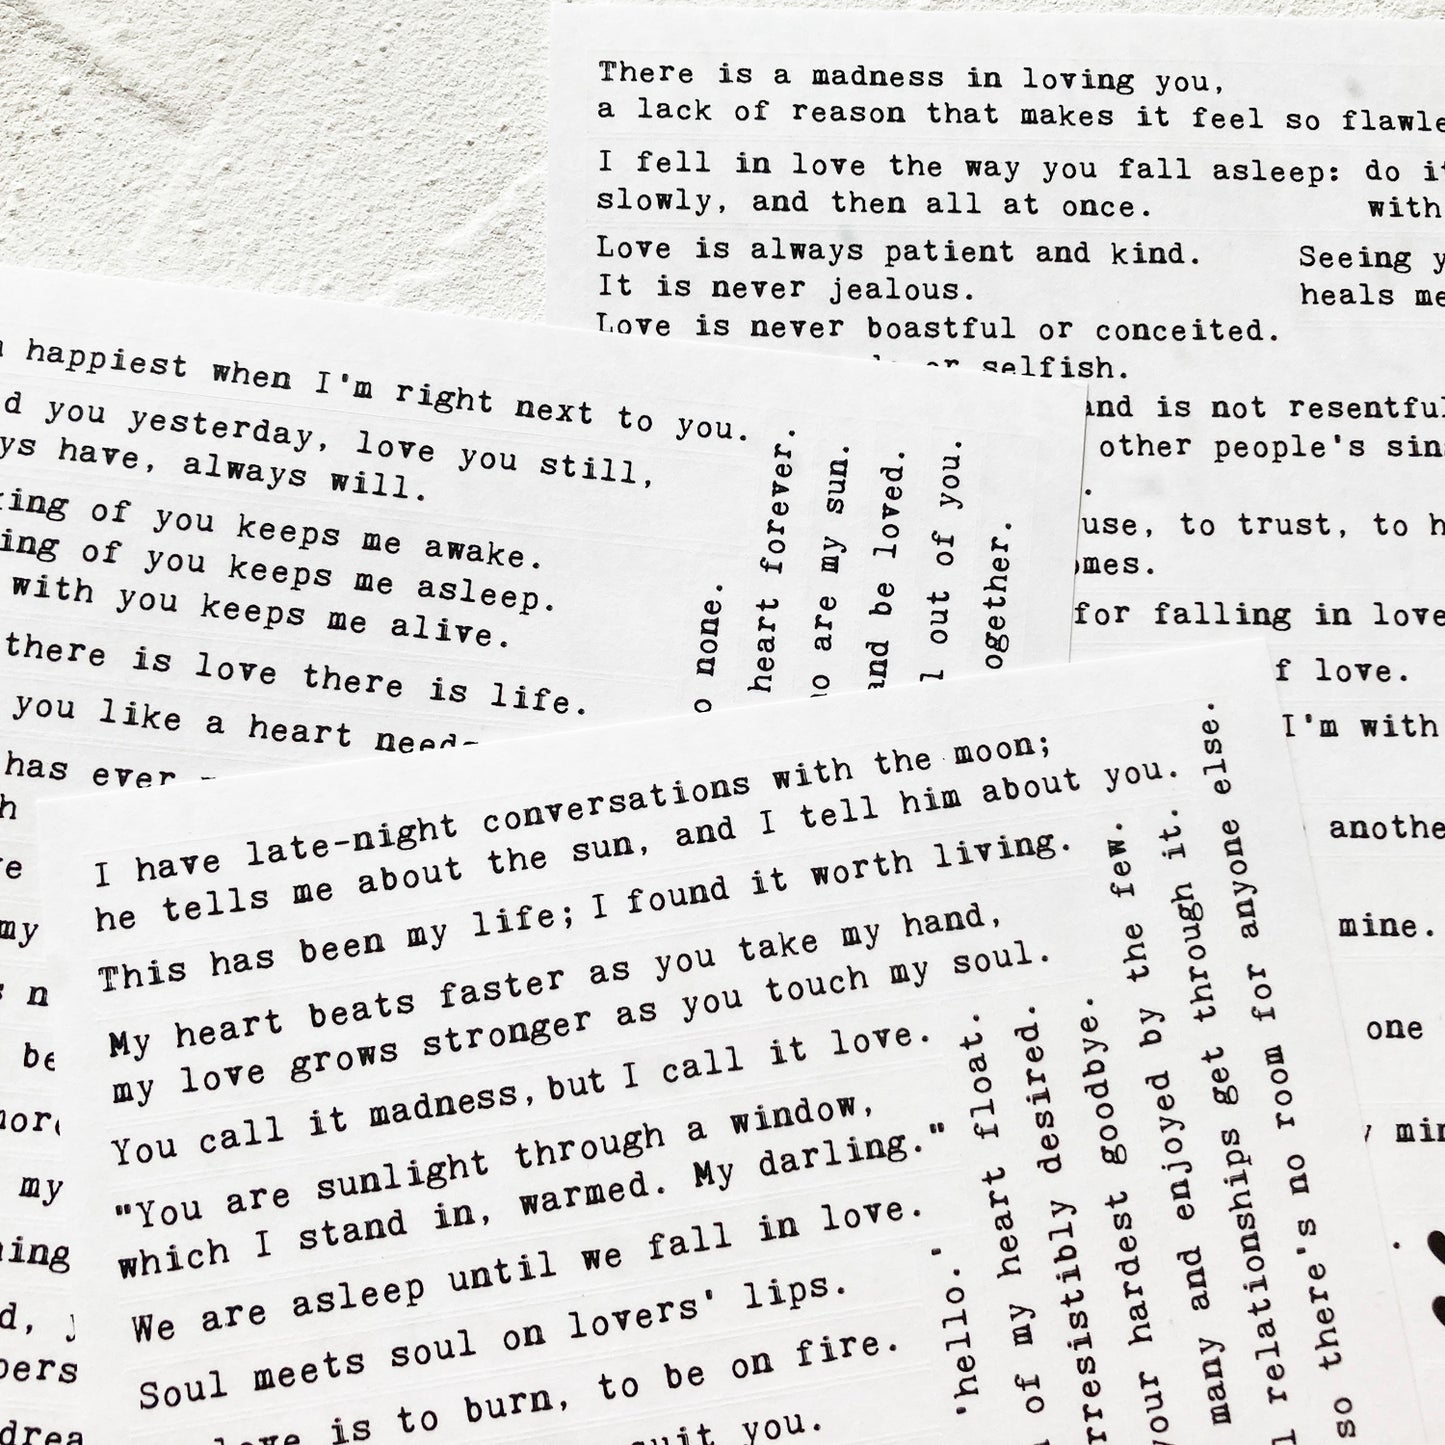 There is a madness in loving you,
a lack of reason that makes it feel so
I fell in love the way you fall asleep:
slowly, and then all at once.
do
with
Love is always patient and kind.
It is never jealous.
Love is never boastful or conceited.
selfish.
Seeing
heals me
is not
other people's
to trust, to
for falling in love
love.
I'm with
mine.
one
happiest when I'm right next to you.
you yesterday, love you still,
have, always will.
of you keeps me awake.
of you keeps me asleep.
with you keeps me alive.
there is love there is life.
you like a heart
has ever
my
be
my
none.
heart forever.
are my sun.
be loved.
out of you.
I have late-night conversations with the moon;
he tells me about the sun, and I tell him about you.
This has been my life; I found it worth living.
My heart beats faster as you take my hand,
my love grows stronger as you touch my soul.
You call it madness, but I call it love.
"You are sunlight through a window,
which I stand in, warmed. My darling."
We are asleep until we fall in love.
Soul meets soul on lovers' lips.
is to burn, to be on fire.
you.
'hello.'
heart float.
of my heart
desired.
your hardest goodbye.
many and enjoyed by the few.
relationships get through it.
so there's no room for anyone else.